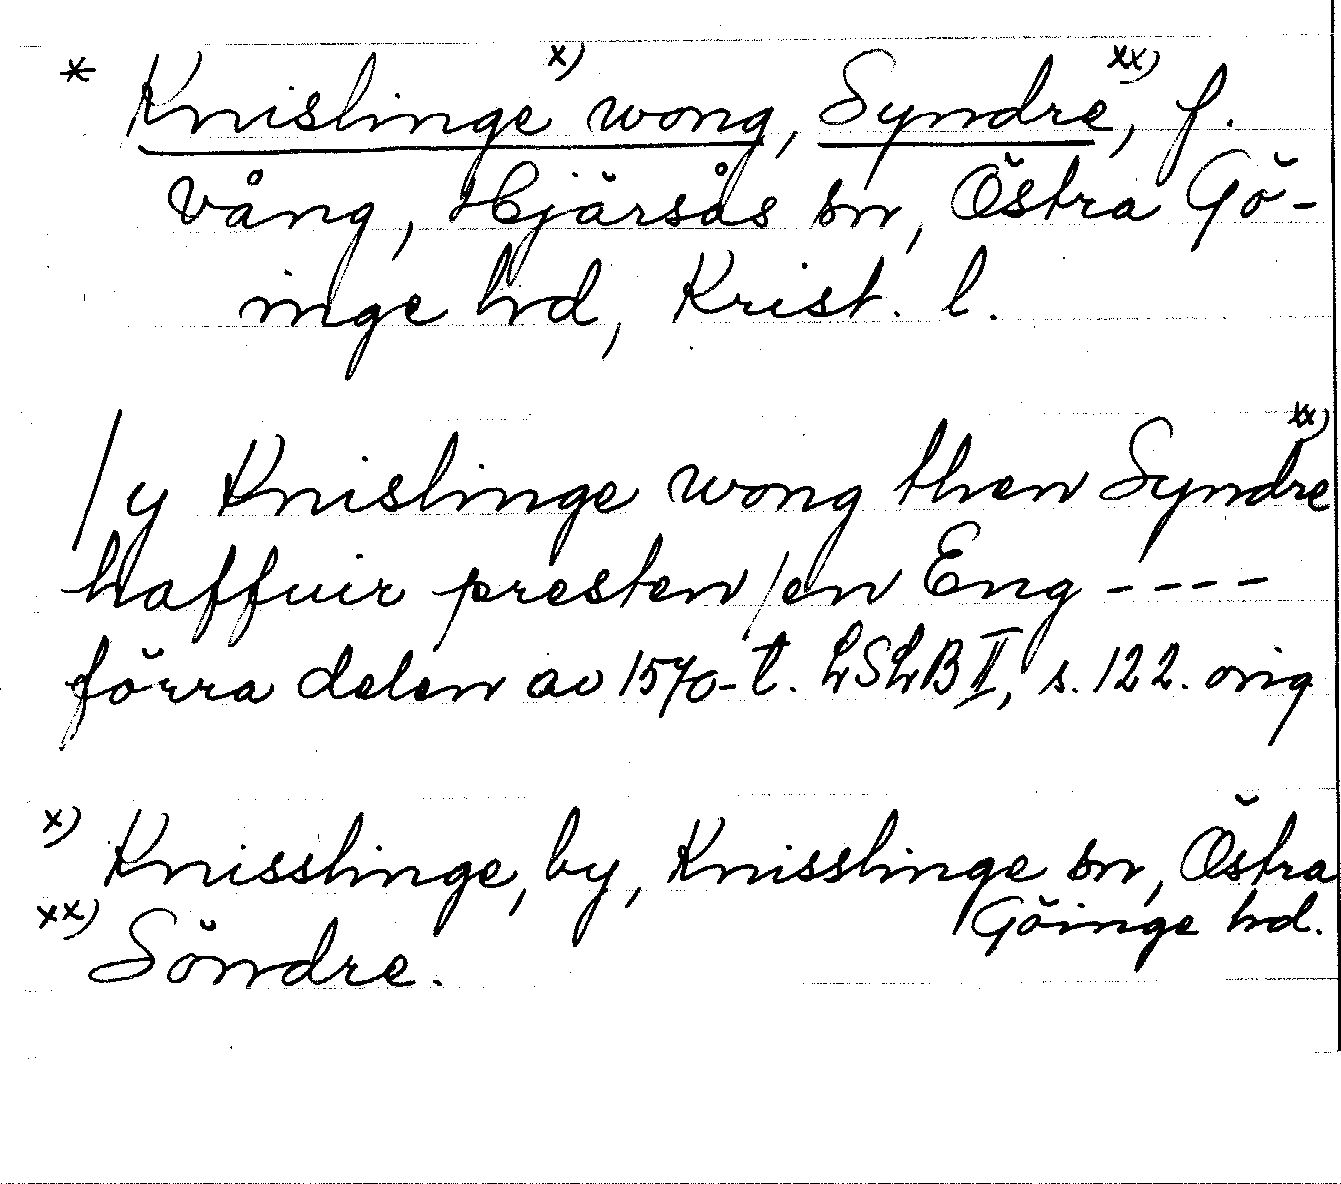 * Knislinge x) wong, Syndre xx), f.
vång, Hjärsås sn, Östra Gö-
inge hd, Krist. l.
/y Knislinge wong then Syndre xx)
haffuir presten / en Eng ----
förra delen av 1570-t. LSLB II, s. 122. orig
x) Knisslinge, by, Knisslinge sn, Östra
Göinge hd.
xx) Söndre.